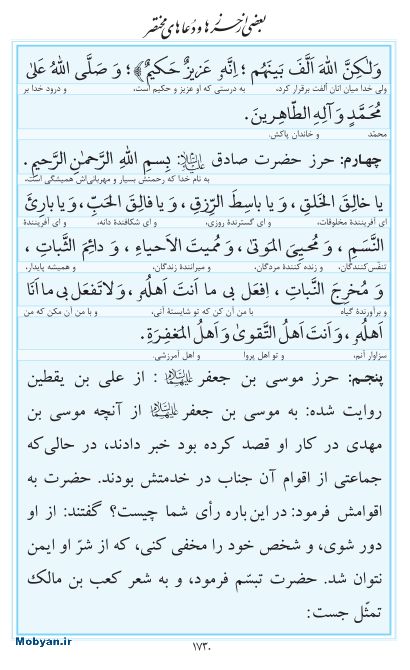 بعضی از حرزها و دعاهای مختصر
وَلٰکِنَّ اللهَ اَلَّفَ بَینَهُم ؛ اِنَّهُ و عَزیزٌ حَکیمٌ﴾؛ وَ صَلَّی اللهُ عَلیٰ
ولی خدا میان آنان الفت برقرار کرد، به درستی که او عزیز و حکیم است، و درود خدا بر
مُحَمَّدٍ وَ آلِهِ الطّاهِرینَ.
محمّد و خاندان پاکش.
چهارم: حرز حضرت صادق علیه‌السلام: بِسمِ اللهِ الرَّحمٰنِ الرَّحیمِ.
به نام خدا که رحمتش بسیار و مهربانی‌اش همیشگی است.
یا خالِقَ الخَلقِ، وَ یا باسِطَ الرِّزقِ، وَ یا فالِقَ الحَبِّ، وَ یا بارِئَ
ای آفرینندهٔ مخلوقات، و ای گسترندهٔ روزی، و ای شکافندهٔ دانه، و ای آفرینندهٔ
النَّسَمِ، وَ مُحیِیَ المَوتیٰ، وَ مُمیتَ الاَحیاءِ، وَ دائِمَ الثَّباتِ،
تنفّس‌کنندگان، و زنده کنندهٔ مردگان، و میرانندهٔ زندگان، و همیشه پایدار،
وَ مُخرِجَ النَّباتِ، اِفعَل بی ما اَنتَ اَهلُهُ و، وَ لا تَفعَل بی ما اَنَا
و برآورندهٔ گیاه با من آن کن که تو شایستهٔ آنی، و با من آن مکن که من
اَهلُهُ و، وَ اَنتَ اَهلُ التَّقویٰ وَ اَهلُ المَغفِرَةِ.
سزاوار آنم، و تو اهل پروا و اهل آمرزشی.
پنجم: حرز موسی بن جعفر علیهماالسلام : از علی بن یقطین
روایت شده: به موسی بن جعفر علیهماالسلام از آنچه موسی بن
مهدی در کار او قصد کرده بود خبر دادند، در حالی‌که
جماعتی از اقوام آن جناب در خدمتش بودند. حضرت به
اقوامش فرمود: در این باره رأی شما چیست؟ گفتند: از او
دور شوی، و شخص خود را مخفی کنی، که از شرّ او ایمن
نتوان شد. حضرت تبسّم فرمود، و به شعر کعب بن مالک
تمثّل جست:
Mobyan.ir
۱۷۳۰